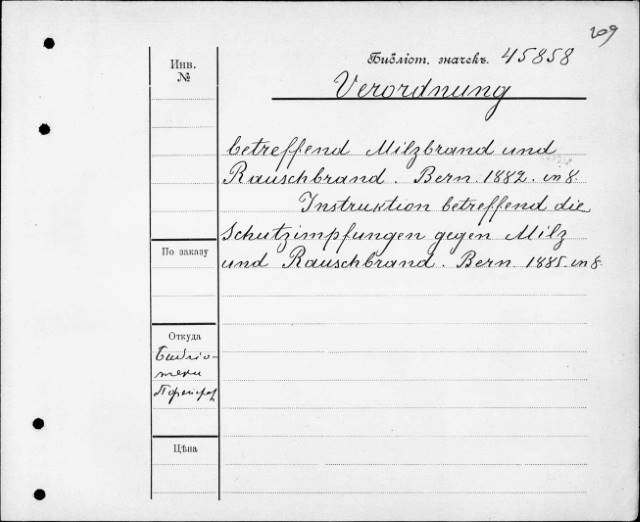 209
Библіот. значекъ. 45858
Verordnung
betreffend Milzbrand und
Rauschbrand. Bern 1882. in 8.
Instruktion betreffend die
Schutzimpfungen gegen Milz
und Rauschbrand. Bern 1885. in 8.
Инв.
№
По заказу
Откуда
Библіо-
теки
Цѣна